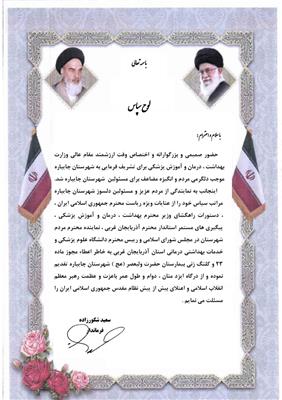 باسمه تعالی
لوح سپاس
با سلام و احترام؛
حضور صمیمی و بزرگوارانه و اختصاص وقت ارزشمند مقام عالی وزارت
بهداشت ، درمان و آموزش پزشکی برای تشریف فرمایی به شهرستان چایپاره
موجب دلگرمی مردم و انگیزه مضاعف برای مسئولین شهرستان چایپاره شد.
اینجانب به نمایندگی از مردم عزیز و مسئولین دلسوز شهرستان چایپاره
مراتب سپاس خود را از عنایات ویژه ریاست محترم جمهوری اسلامی ایران ،
دستورات راهگشای وزیر محترم بهداشت ، درمان و آموزش پزشکی ،
پیگیری های مستمر استاندار محترم آذربایجان غربی ، نماینده محترم مردم
شهرستان در مجلس شورای اسلامی و رییس محترم دانشگاه علوم پزشکی و
خدمات بهداشتی درمانی استان آذربایجان غربی به خاطر اعطاء مجوز ماده
۲۳ و کلنگ زنی بیمارستان حضرت ولیعصر (عج ) شهرستان چایپاره تقدیم
نموده و از درگاه ایزد منان ، دوام و طول عمر باعزت و عظمت رهبر معظم
انقلاب اسلامی و اعتلای بیش از پیش نظام مقدس جمهوری اسلامی ایران را
مسئلت می نمایم .
سعید شکورزاده
فرماندار